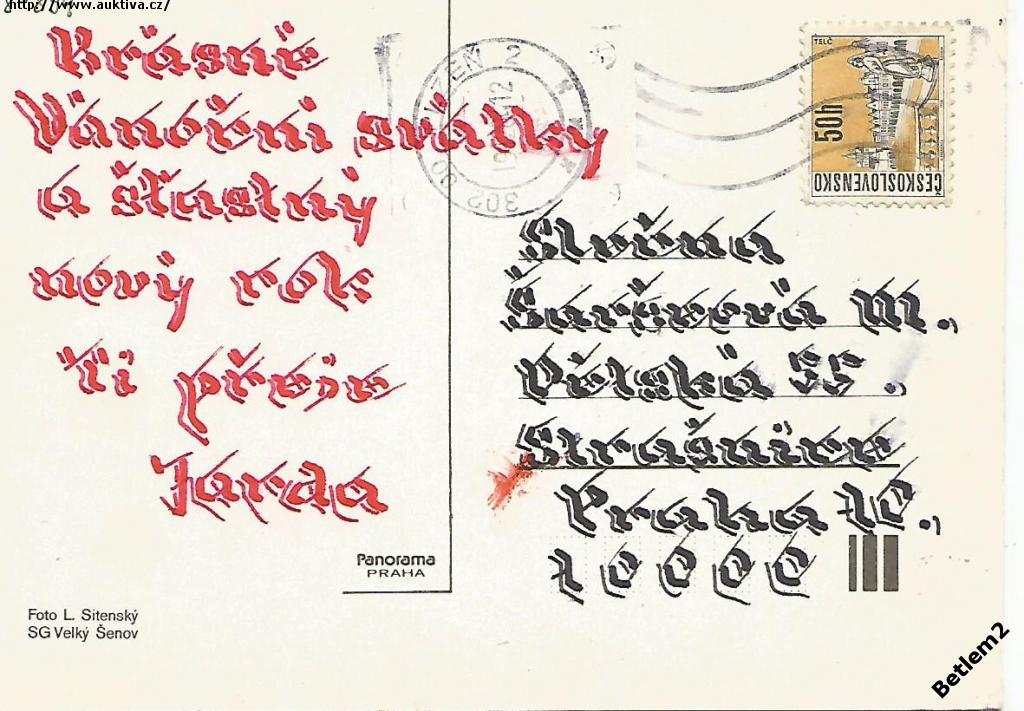 http://www.auktiva.cz/
Krásné
Vánoční svátky
a šťastný
nový rok
Ti přeje
Jarda
PLZEŇ 2
302 90
12
TELČ
50h
ČESKOSLOVENSKO
Slečna
M.,
55.,
Strašnice
Praha 10.,
10000
Panorama
PRAHA
Foto L. Sitenský
SG Velký Šenov
Betlem2